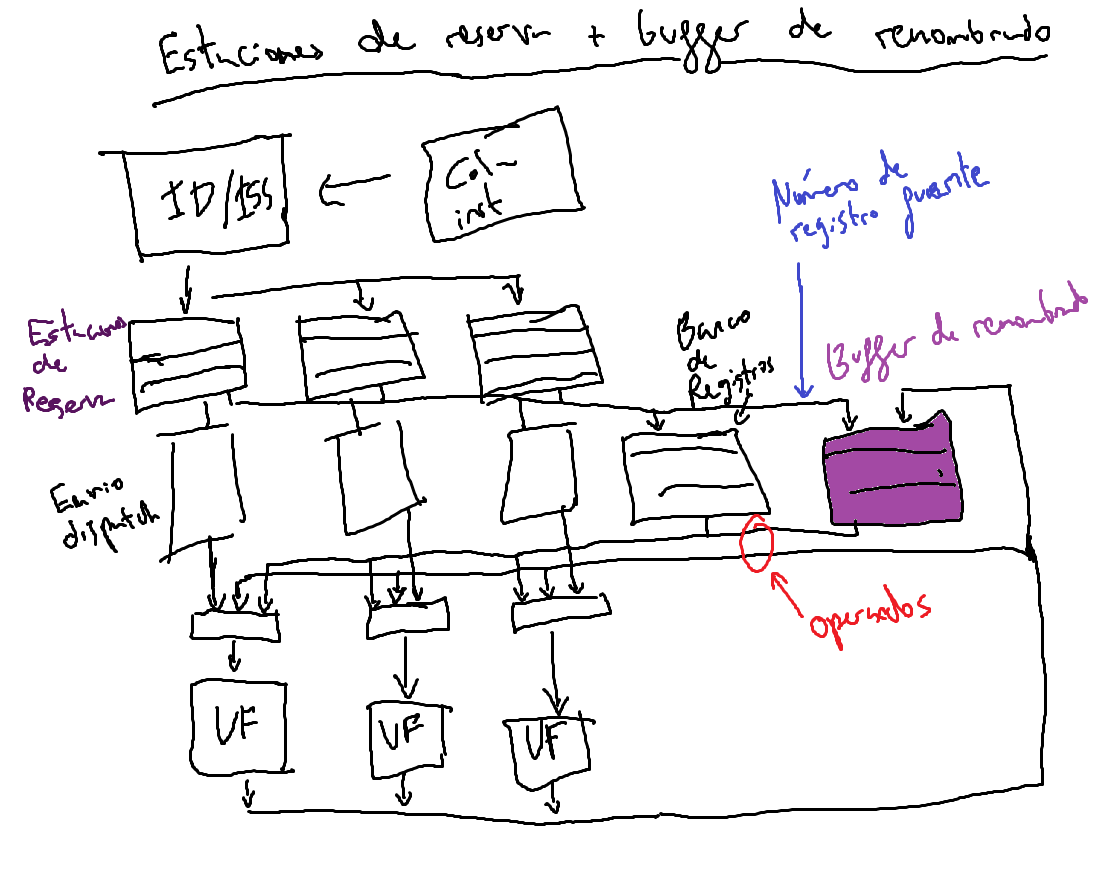 Estaciones de reserva + buffer de renombrado
ID/ISS
Col-
inst
Número de
registro fuente
Estaciones
de
Reserva
Banco
de
Registros
Buffer de renombrado
Envio
dispatch
operandos
UF
UF
UF